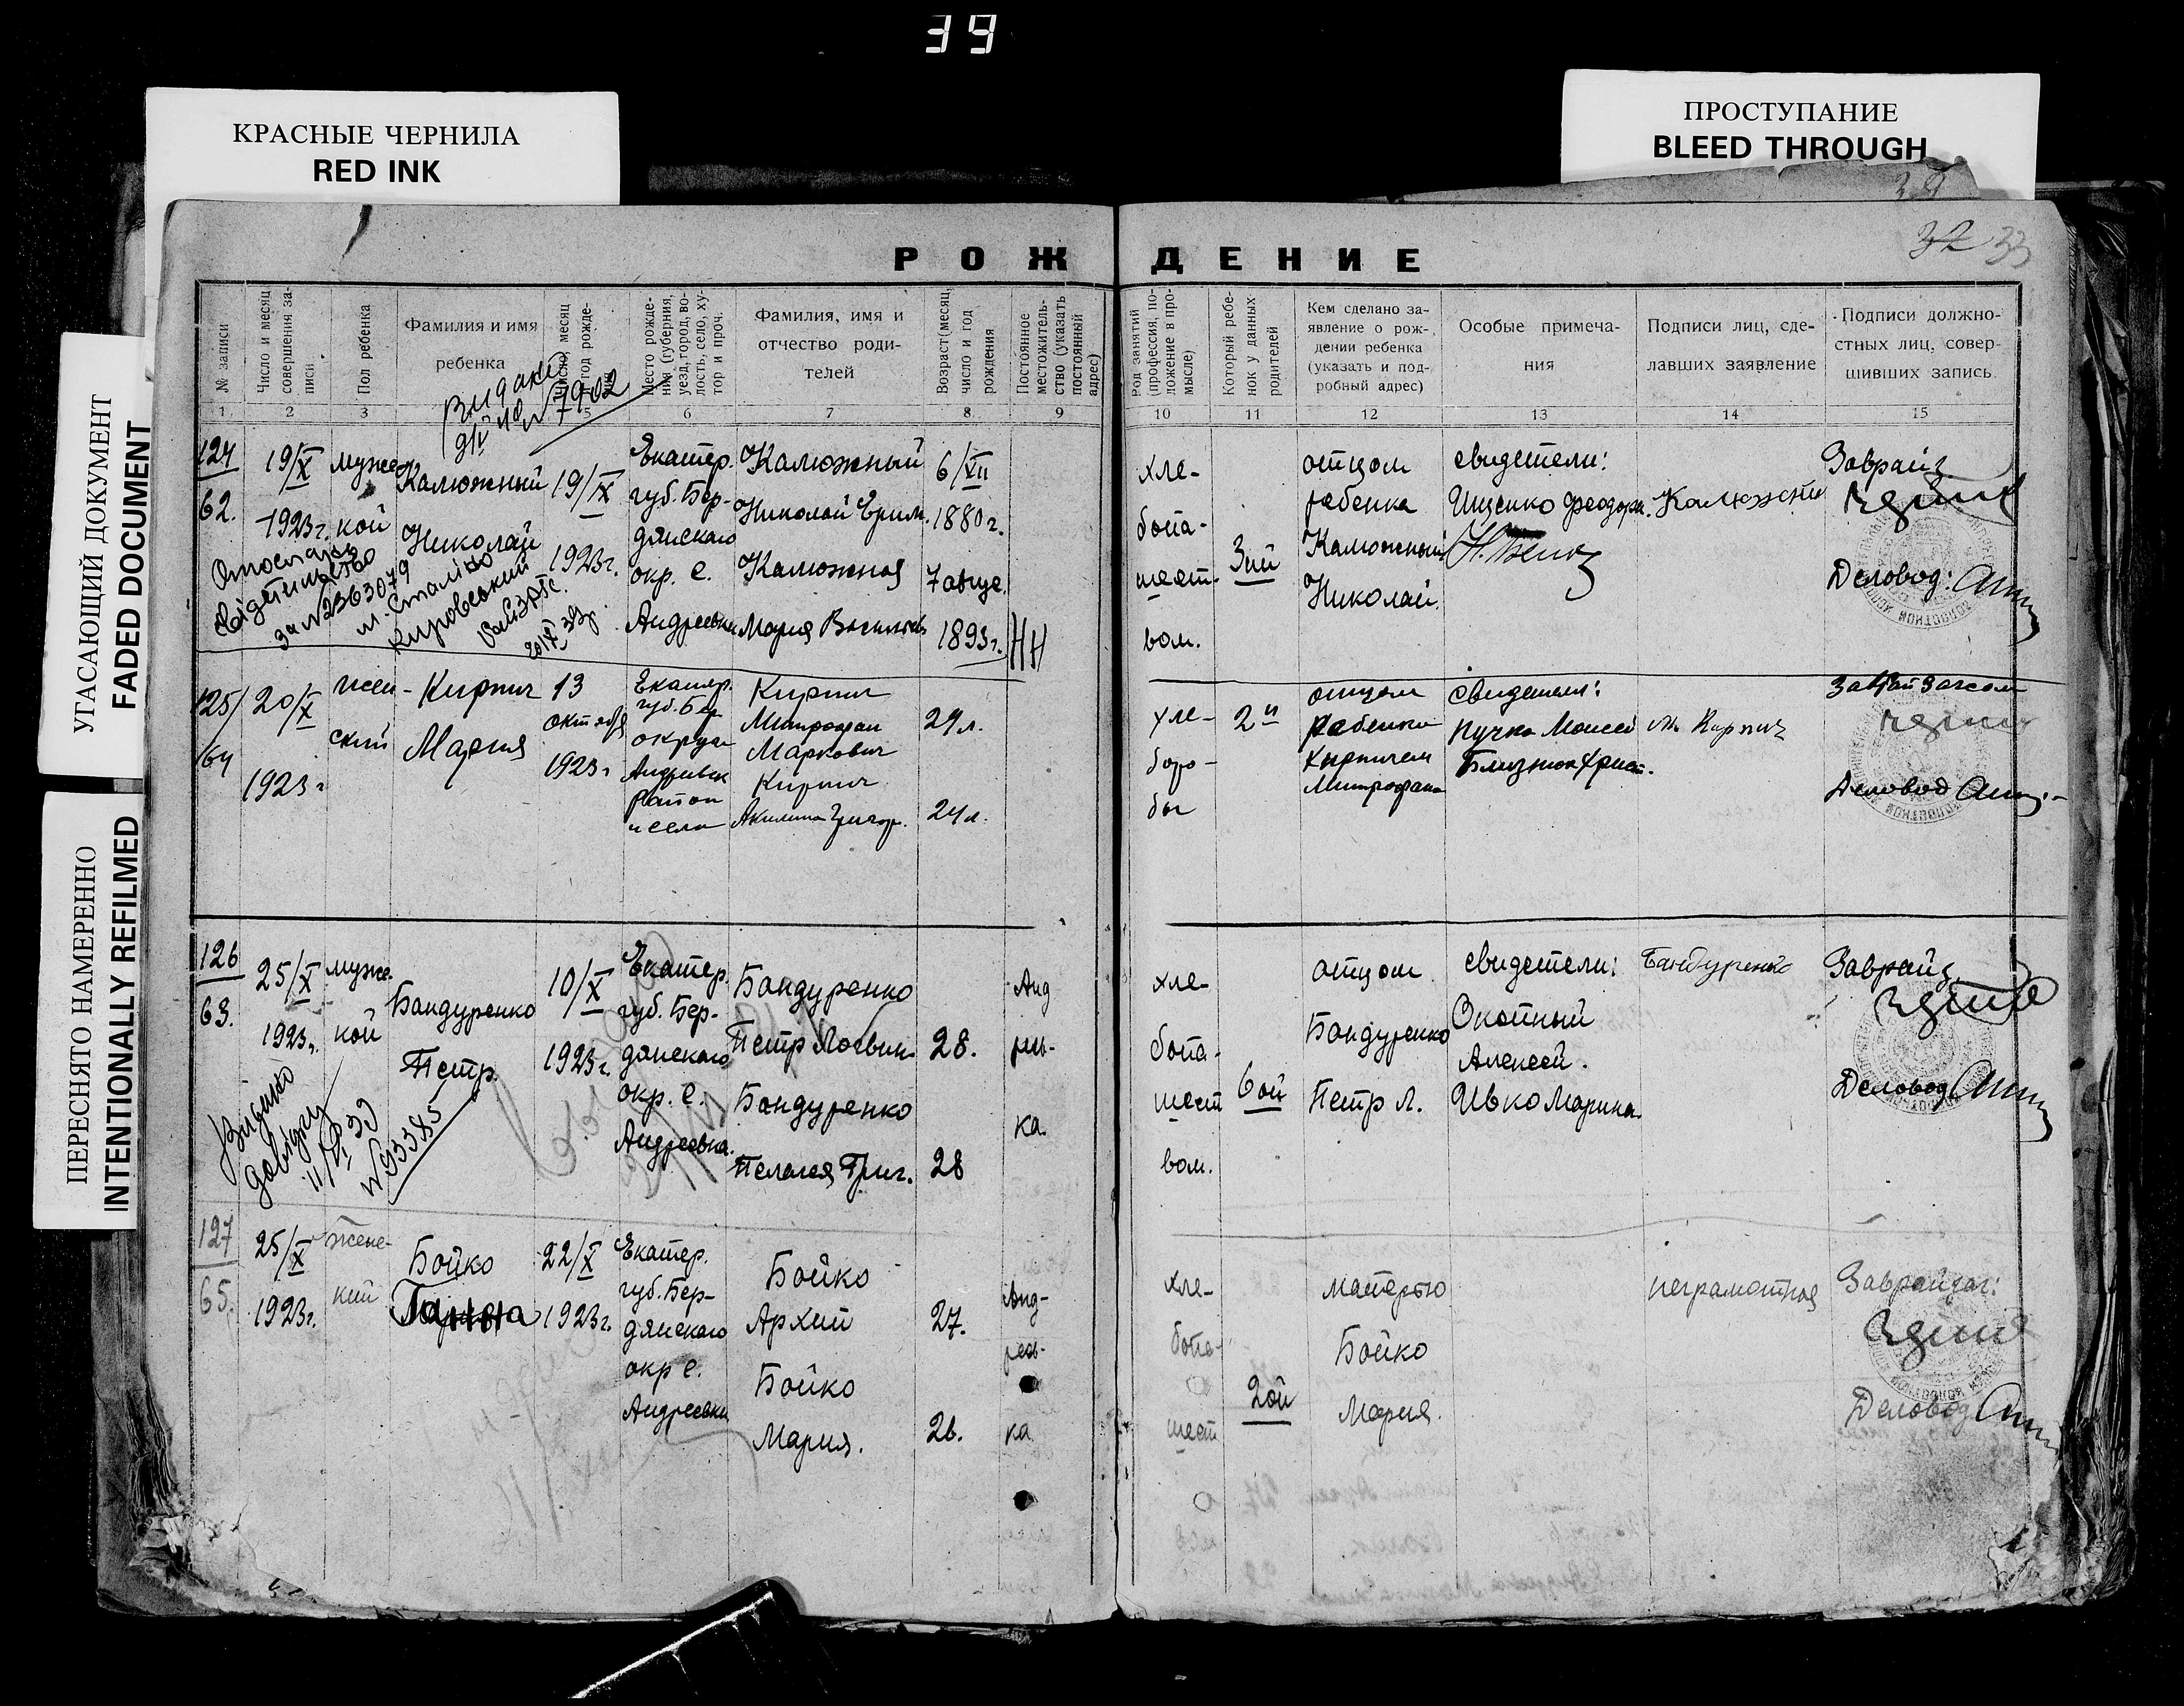 39
КРАСНЫЕ ЧЕРНИЛА
RED INK
ПРОСТУПАНИЕ
BLEED THROUGH
УГАСАЮЩИЙ ДОКУМЕНТ
FADED DOCUMENT
ПЕРЕСНЯТО НАМЕРЕННО
INTENTIONALLY REFILMED
32 33
РОЖДЕНИЕ
№ записи
Число и месяц совершения записи
Пол ребенка
Фамилия и имя
ребенка
месяц
год рожде-
Место рожде-
ния (губерния,
уезд, город, во-
лость, село, ху-
тор и проч.
Фамилия, имя и
отчество роди-
телей
Возраст (месяц,
число и год
рождения
Постоянное
местожитель-
ство (указать
постоянный
адрес)
Род занятий
(профессия, по-
ложение в про-
мысле)
Который ребе-
нок у данных
родителей
Кем сделано за-
явление о рож-
дении ребенка
(указать и под-
робный адрес)
Особые примеча-
ния
Подписи лиц, сде-
лавших заявление
Подписи должно-
стных лиц, совер-
шивших запись.
1 2 3 5 6 7 8 9 10 11 12 13 14 15
№ 7902
124
62.
19/X
1923г.
мужс
кой
Калюжный
Николай
19/IX
1923г.
Екатер.
губ. Бер-
дянскаго
окр. с.
Андреевки
Калюжный
Николай Ефим.
Калюжная
Мария Васильев
6/XII
1880г.
7 авгус.
1893г.
НН
хле-
бопа-
шест-
вом.
3ий
отцом
ребенка
Калюжный
Николай.
свидетели:
Ищенко Феодора.
Калюжны
Заврайз
Деловод:
Отослано
свідетильство
за № 2363079
м. Сталіно
Кировський
125/
64
20/X
1923г
жен-
ский
Кирпич
Мария
13
октября
1923г
Екатер.
губ. Бер
округа
Андреевск
район
и село
Кирпич
Митрофан
Маркович
Кирпич
Акилина Григор.
29 л.
24 л.
хле-
боро-
бы
2й
отцом
ребенка
Кирпичем
Митрофана
свидетели:
Пучка Моисей
Близнюк Христ.
М. Кирпич
Деловод
126
63.
25/X
1923г.
мужс
кой
Бондуренко
Петр.
10/X
1923г.
Екатер.
губ. Бер-
дянскаго
окр. с.
Андреевка.
Бондуренко
Петр Логвин.
Бондуренко
Пелагея Григ.
28.
28
Анд
рев-
ка.
хле-
бопа-
шест
вом.
6ой
отцом
Бондуренко
Петр Л.
свидетели:
Охотный
Алексей.
Ивко Марина.
Бандуренко
Заврайз
Деловод
Видано
довідку
11/VI 39
№ 93385
127
65.
25/X
1923г.
женс-
кий
Бойко
22/X
1923г.
Екатер.
губ. Бер-
дянскаго
окр с.
Андреевки
Бойко
Архип
Бойко
Мария.
27.
26.
Анд-
рев-
ка
хле-
бопа-
шест
2ой
матерью
Бойко
Мария.
неграмотная
Заврайзаг:
Деловод